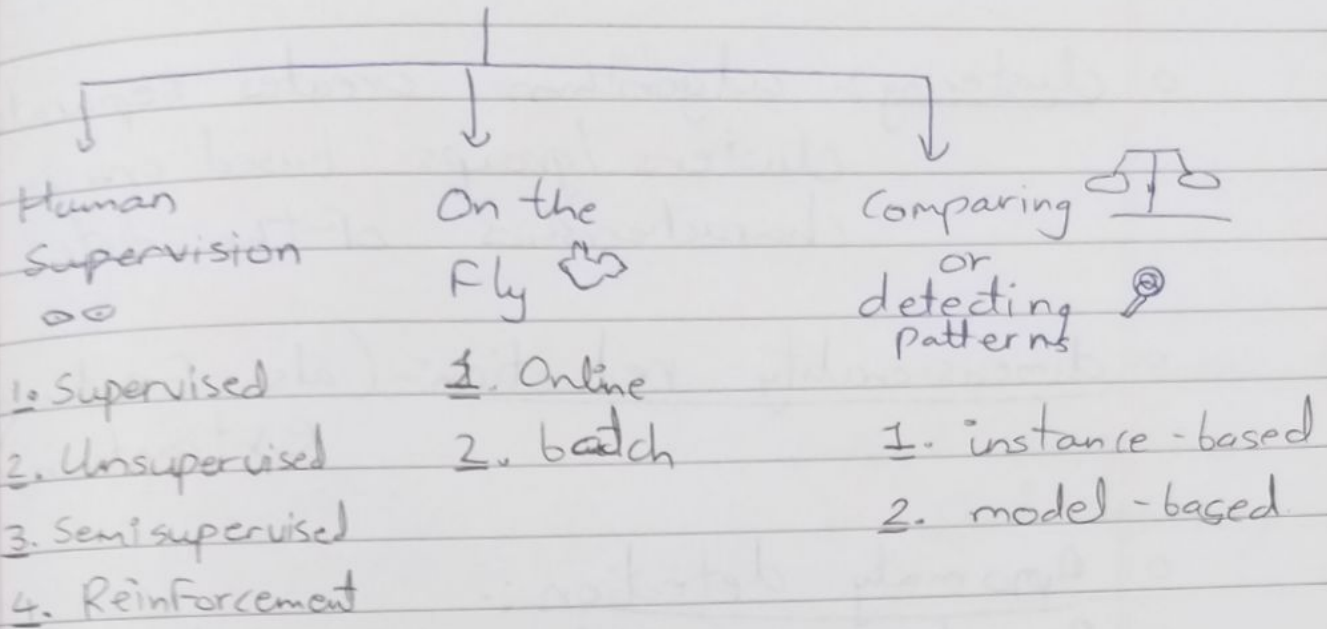 Human
Supervision
1. Supervised
2. Unsupervised
3. Semisupervised
4. Reinforcement
On the
Fly
1. Online
2. batch
Comparing
or
detecting
patterns
1. instance-based
2. model-based